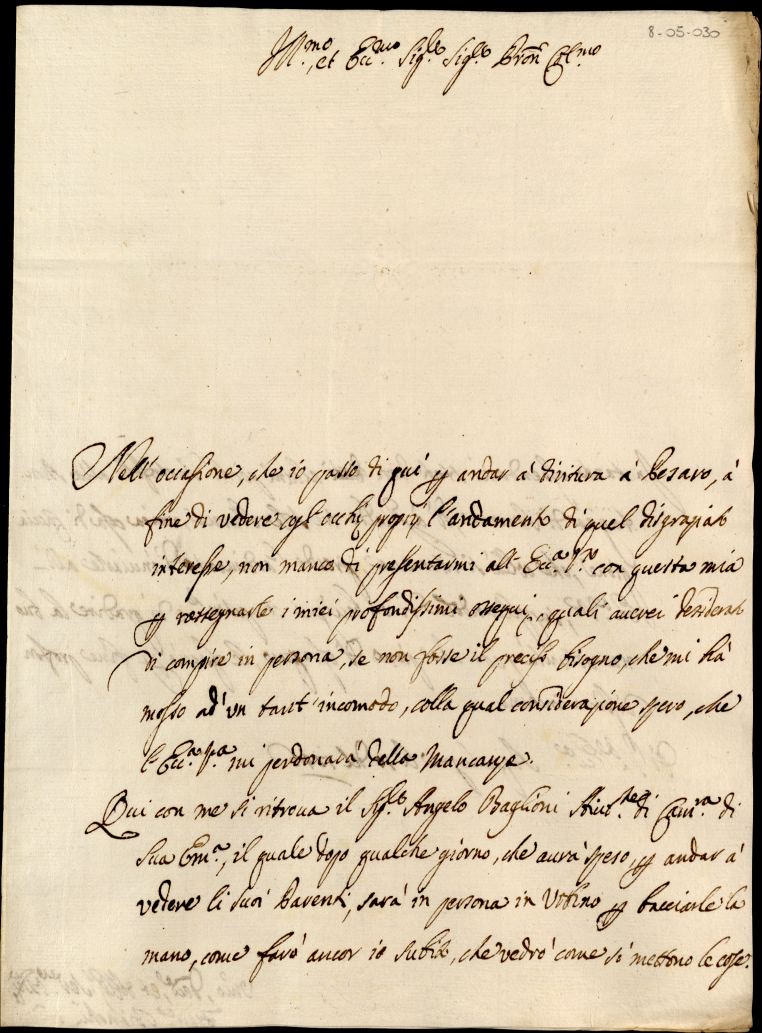 8-05-030
Ill.mo, et Ecc.mo Sig.re Sig.re Pron Col.mo
Nell'occasione, che io passo di quì p andar à dirittura à Pesaro, à
fine di vedere cogl'occhi proprij l'andamento di quel disgraziato
interesse, non manco di presentarmi all'Ecc.a V.ra con questa mia
p rassegnarle i miei profondissimi ossequi, quali aurei desiderato
di compire in persona, se non fosse il preciso bisogno, che mi hà
mosso ad un tant'incomodo, colla qual considerazione spero, che
l'Ecc.a V.a mi perdonarà della Mancanza.
Qui con me si ritroua il Sig.re Angelo Baglioni di Cam.ra di
Sua Em.a, il quale dopo qualche giorno, che aurà speso, p andar à
vedere li suoi Parenti, sarà in persona in Vrbino p bacciarle la
mano, come farò ancor io subito, che vedrò come si mettono le cose.